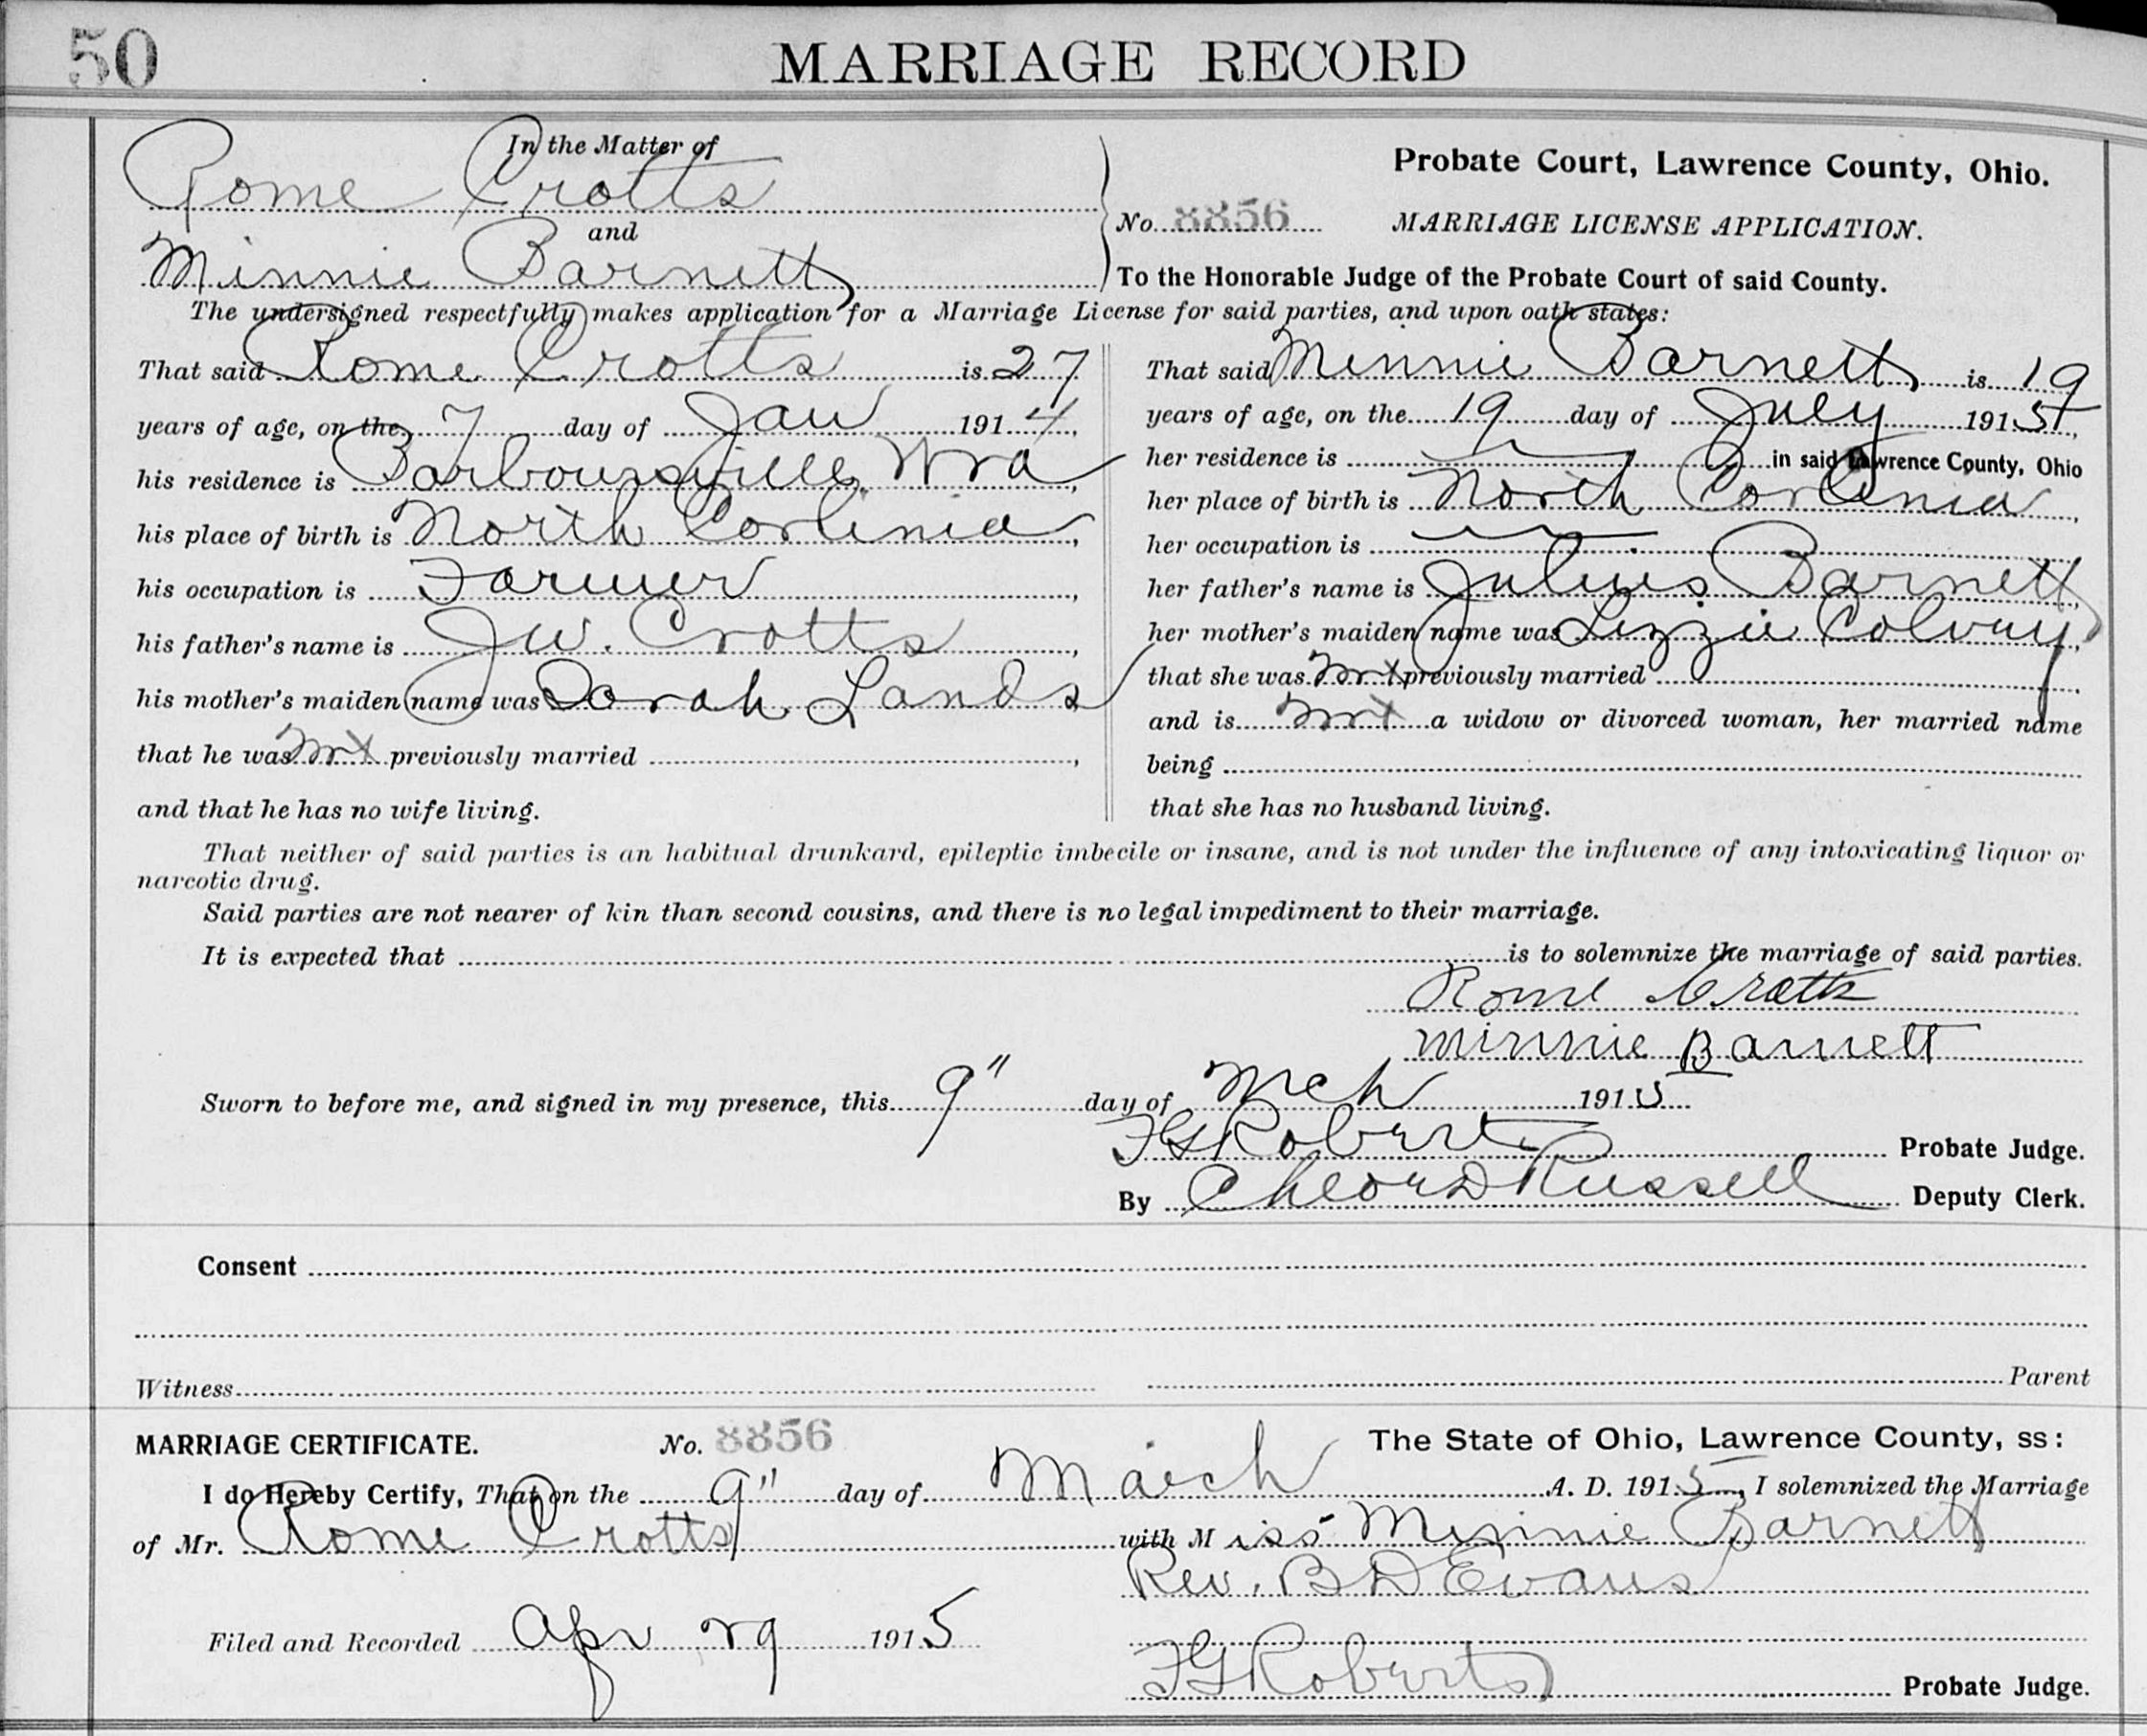 50
MARRIAGE RECORD
In the Matter of
Rome Crotts
and
Minnie Barnett
Probate Court, Lawrence County, Ohio.
No. 8856 MARRIAGE LICENSE APPLICATION.
To the Honorable Judge of the Probate Court of said County.
The undersigned respectfully makes application for a Marriage License for said parties, and upon oath states:
That said Rome Crotts is 27
years of age, on the 7 day of Jan 1914,
his residence is Barboursville, Wva,
his place of birth is North Carlinia,
his occupation is Farmer,
his father's name is J W. Crotts,
his mother's maiden name was Sarah Lands
that he was not previously married,
and that he has no wife living.
That said Minnie Barnett is 19
years of age, on the 19 day of July 1915,
her residence is in said Lawrence County, Ohio
her place of birth is North Carlinia,
her occupation is
her father's name is Julius Barnett,
her mother's maiden name was Lizzie
that she was not previously married
and is not a widow or divorced woman, her married name
being
that she has no husband living.
That neither of said parties is an habitual drunkard, epileptic imbecile or insane, and is not under the influence of any intoxicating liquor or
narcotic drug.
Said parties are not nearer of kin than second cousins, and there is no legal impediment to their marriage.
It is expected that is to solemnize the marriage of said parties.
Rome Crotts
Minnie Barnett
Sworn to before me, and signed in my presence, this 9" day of Mch 1915
F G Roberts Probate Judge.
By Russell Deputy Clerk.
Consent
Witness Parent
MARRIAGE CERTIFICATE. No. 8856 The State of Ohio, Lawrence County, ss:
I do Hereby Certify, That on the 9" day of March A. D. 1915, I solemnized the Marriage
of Mr. Rome Crotts with Miss Minnie Barnett
Rev. B D Evans
Filed and Recorded Apr 29 1915
F G Roberts Probate Judge.